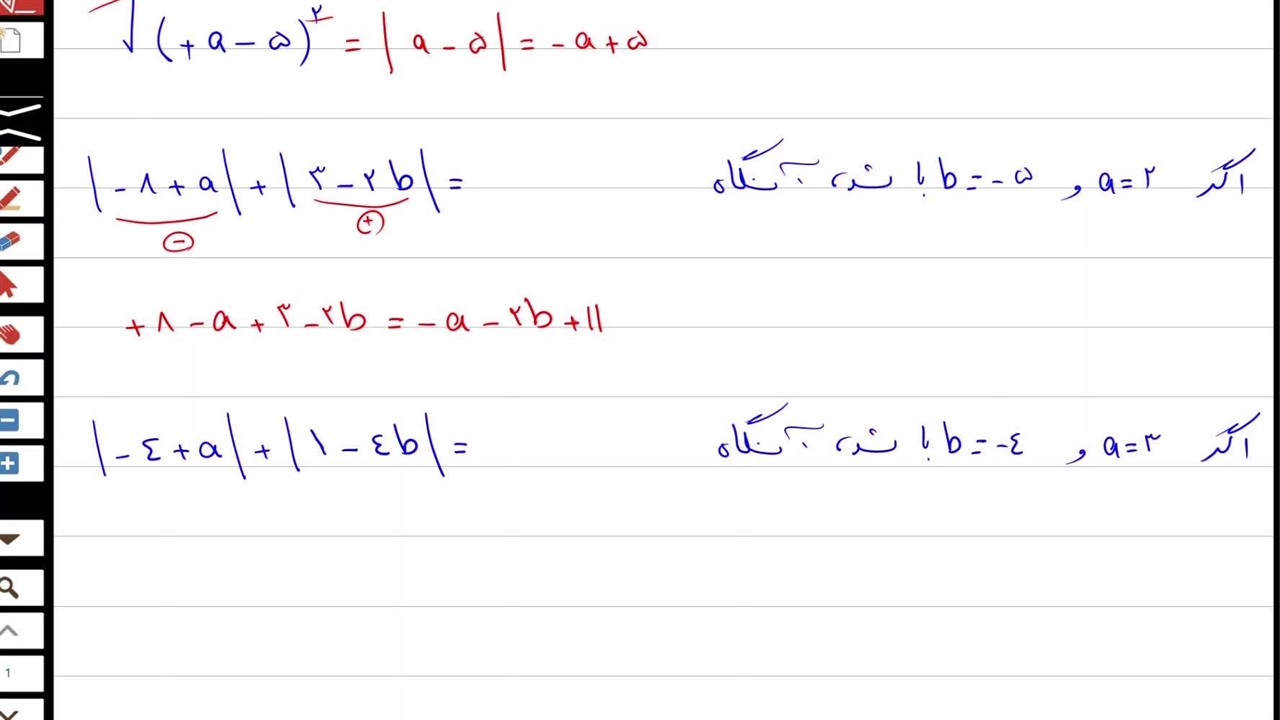 √(+a - ۵)^۲ = |a - ۵| = -a + ۵
اگر a = ۲ و b = -۵ باشد، آنگاه |-۸ + a| + |۳ - ۲b| =
⊖ ⊕
+۸ - a + ۳ - ۲b = -a - ۲b + ۱۱
اگر a = ۳ و b = -٤ باشد، آنگاه |-٤ + a| + |۱ - ٤b| =
1